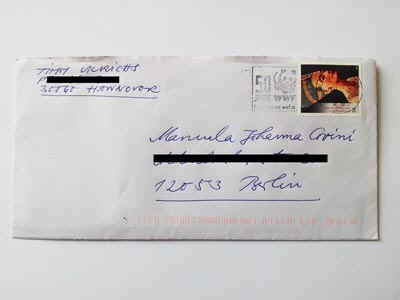 TIMM ULRICHS
30161 HANNOVER
50
Manuela Johanna Covini
12053 Berlin